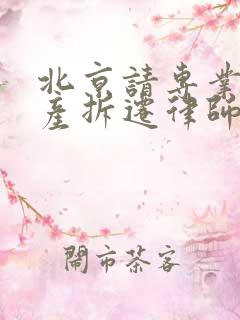 北京請專業
產拆遷律師
鬧市茶客